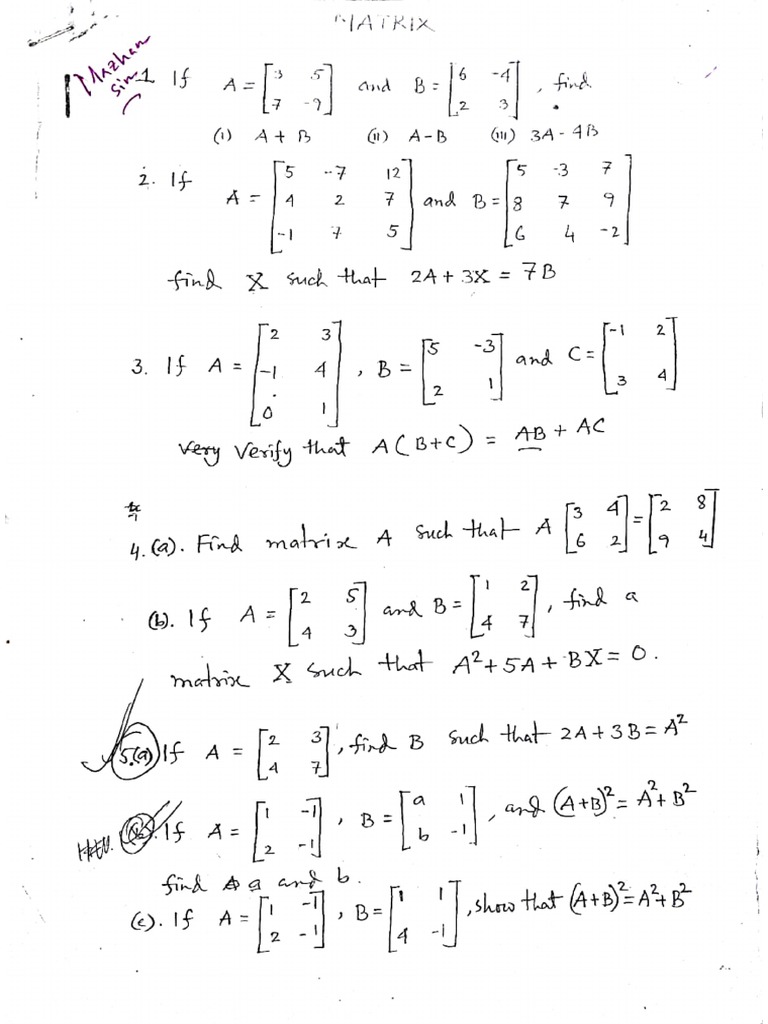 MATRIX
Mazhar
sir
1. If A = [3 5; 7 -9] and B = [6 -4; 2 3], find
(i) A + B (ii) A - B (iii) 3A - 4B
2. If A = [5 -7 12; 4 2 7; -1 7 5] and B = [5 -3 7; 8 7 9; 6 4 -2]
find X such that 2A + 3X = 7B
3. If A = [2 3; -1 4; 0 1], B = [5 -3; 2 1] and C = [-1 2; 3 4]
very Verify that A(B+C) = AB + AC
4. (a). Find matrix A such that A [3 4; 6 2] = [2 8; 9 4]
(b). If A = [2 5; 4 3] and B = [1 2; 4 7], find a
matrix X such that A² + 5A + BX = 0.
5.(a) If A = [2 3; 4 7], find B such that 2A + 3B = A²
(b). If A = [1 -1; 2 -1], B = [a 1; b -1], and (A+B)² = A² + B²
find a and b.
(c). If A = [1 -1; 2 -1], B = [1 1; 4 -1], show that (A+B)² = A² + B²